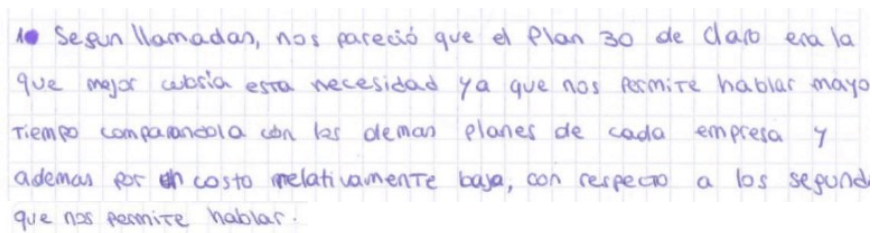 1● Segun llamadas, nos pareció que el Plan 30 de Claro era la
que mejor cubria esta necesidad ya que nos permite hablar mayo
tiempo comparandola con las demas planes de cada empresa y
ademas por un costo relativamente baja, con respecto a los segund
que nos permite hablar.